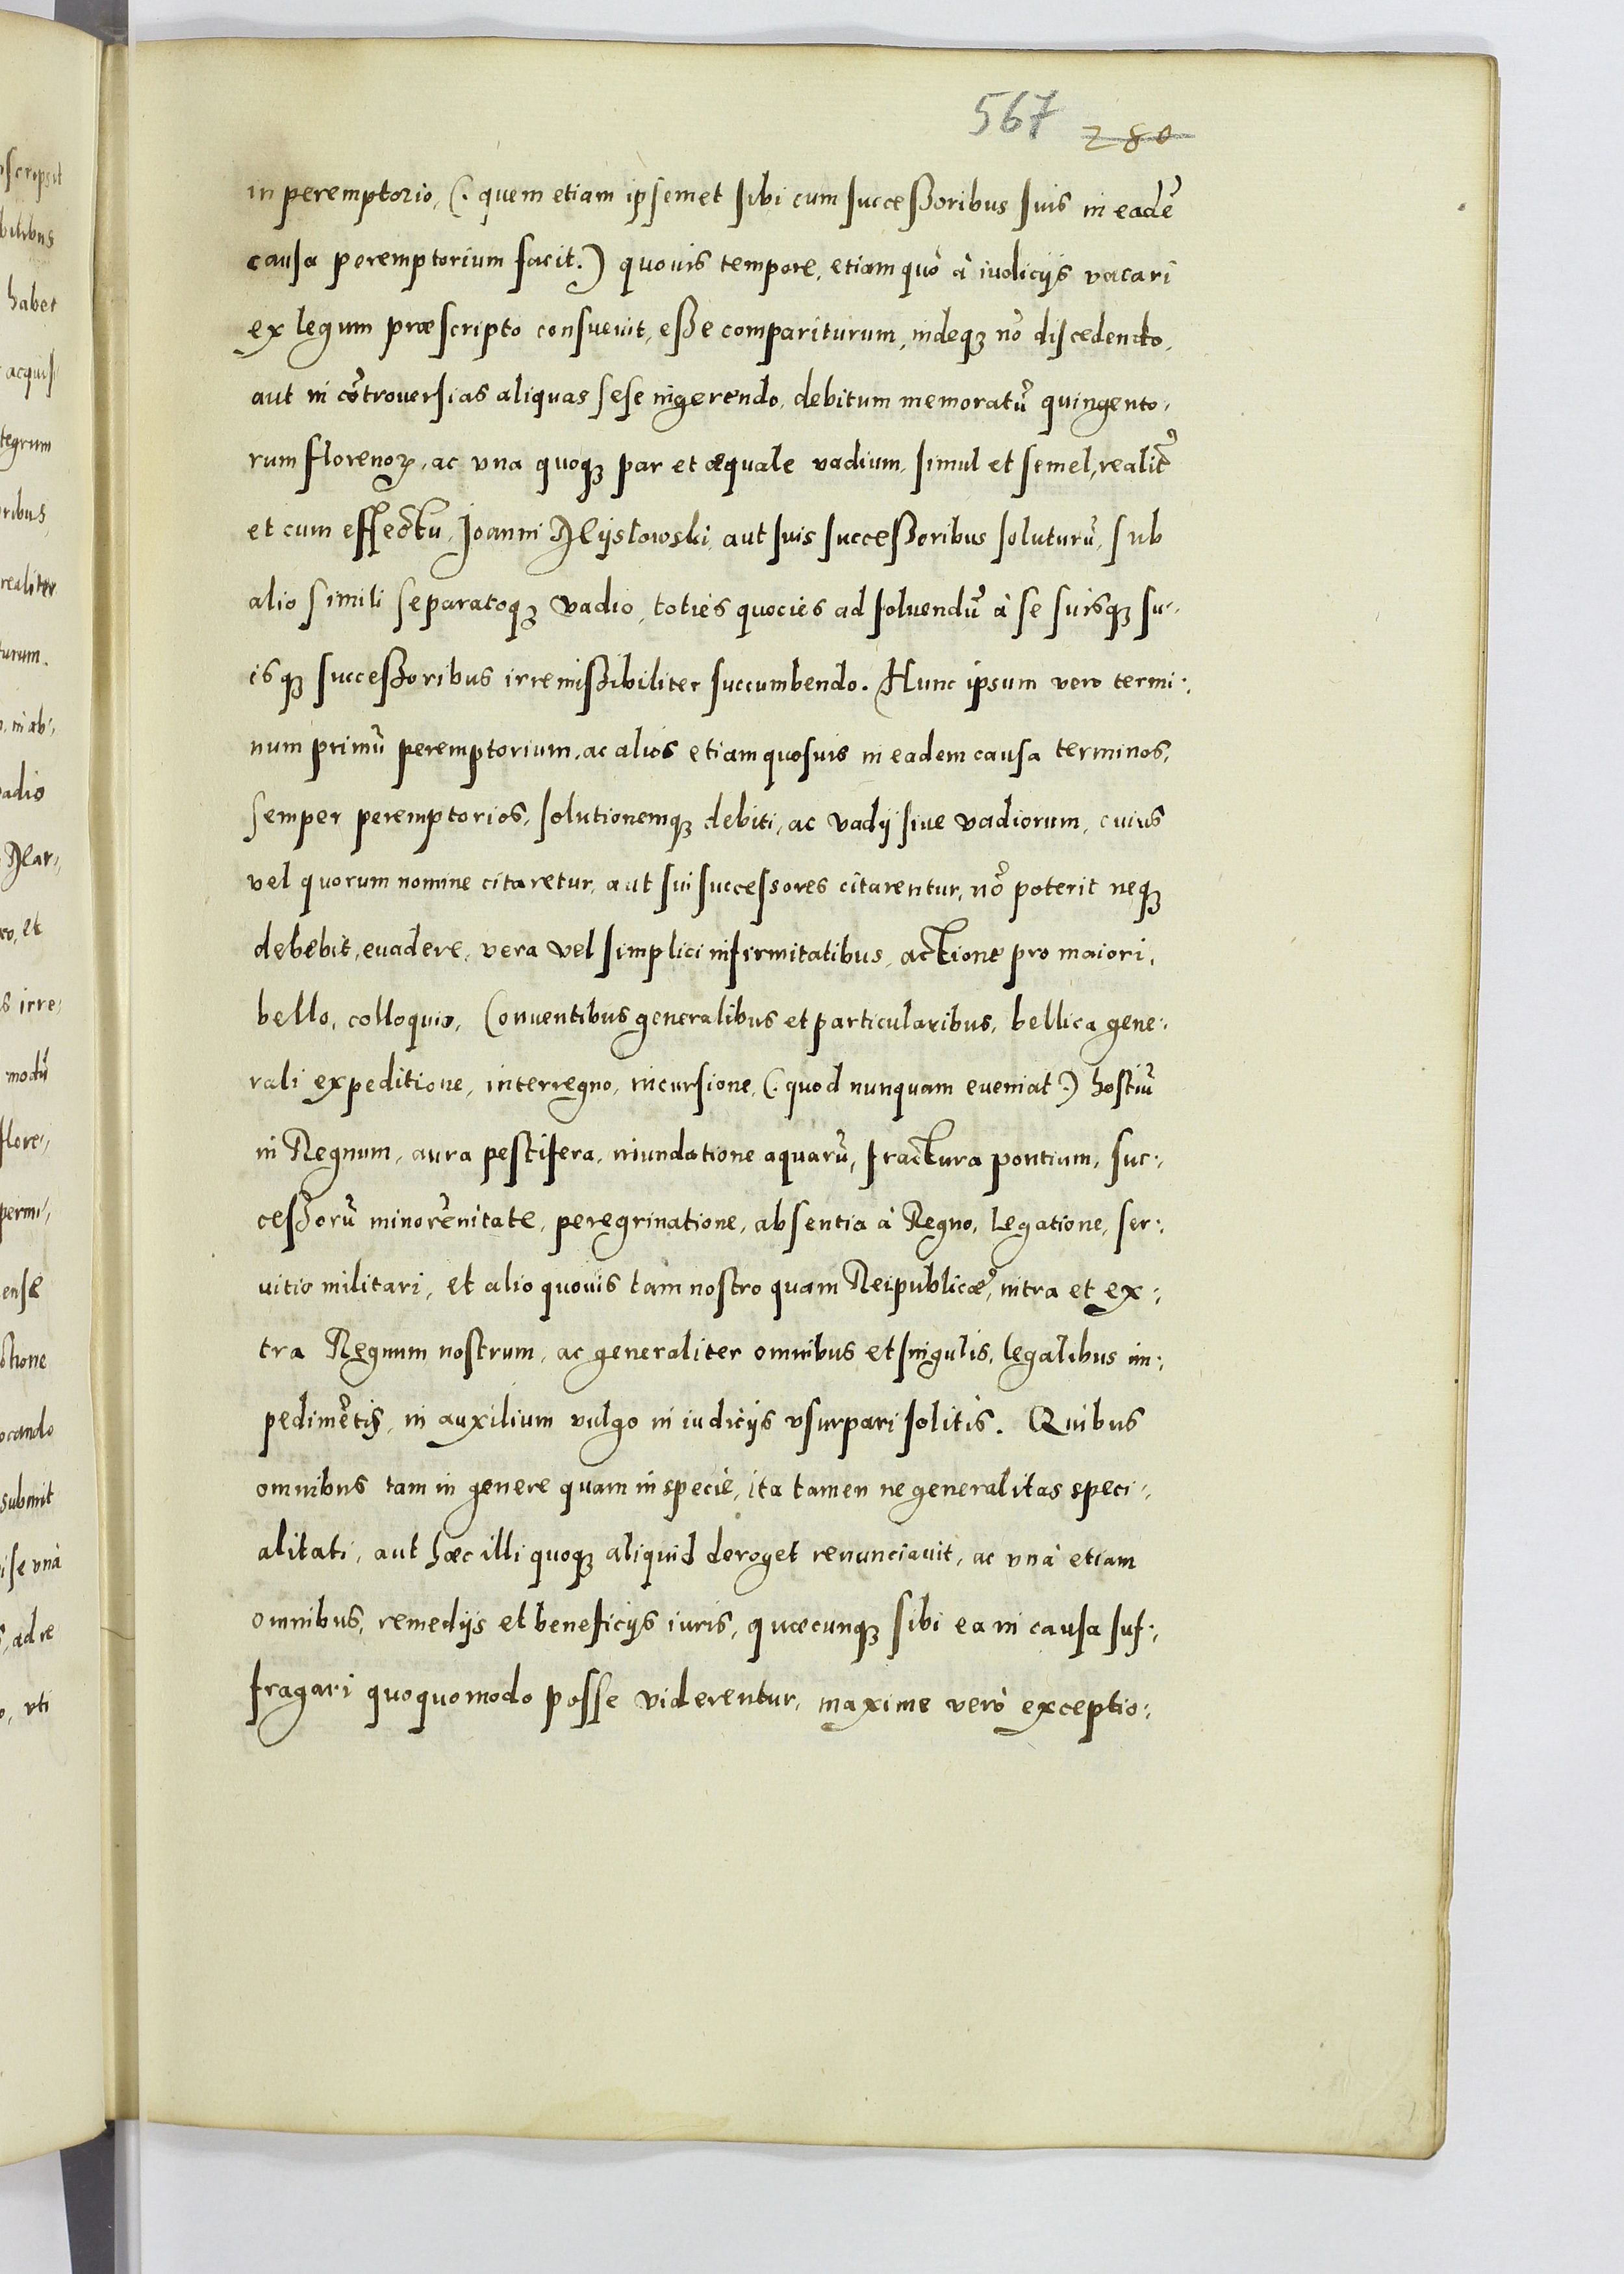 567 280
in peremptorio, (. quem etiam ipsemet sibi cum successoribus suis in eadē
causa peremptorium facit.) quouis tempore, etiam quò à iudicijs vacari
ex legum præscripto consueuit, esse compariturum, indeqꝫ nō discedendo,
aut in cōtrouersias aliquas sese ingerendo, debitum memoratū quingento,,
rum florenoꝝ, ac vna quoqꝫ par et æquale vadium, simul et semel, realitʳ
et cum effectu, Joanni Myslowski, aut suis successoribus soluturū, sub
alio simili separatoqꝫ vadio, toties quocies ad soluendū à se suisqꝫ su,,
isqꝫ successoribus irremissibiliter succumbendo. Hunc ipsum vero termi,,
num primū peremptorium, ac alios etiam quosuis in eadem causa terminos,
semper peremptorios, solutionemqꝫ debiti, ac vadij siue vadiorum, cuius
vel quorum nomine citaretur, aut sui successores citarentur, nō poterit neqꝫ
debebit, euadere, vera vel simplici infirmitatibus, actione pro maiori,
bello, colloquio, Conuentibus generalibus et particularibus, bellica gene,,
rali expeditione, interregno, incursione, (. quod nunquam eueniat.) hostiū
in Regnum, aura pestifera, inundatione aquarū, fractura pontium, suc,,
cessorū minorēnitate, peregrinatione, absentia à Regno, Legatione, ser,,
uitio militari, et alio quouis tam nostro quam Reipublicæ, intra et ex,,
tra Regnum nostrum, ac generaliter omnibus et singulis, legalibus im,,
pedimētis, in auxilium vulgo in iudicijs vsurpari solitis. Quibus
omnibus tam in genere quam in specie, ita tamen ne generalitas speci,,
alitati, aut hæc illi quoqꝫ aliquid deroget renunciauit, ac vnà etiam
omnibus, remedijs et beneficijs iuris, quæcunqꝫ sibi ea in causa suf,,
fragari quoquomodo posse viderentur, maxime verò exceptio,,